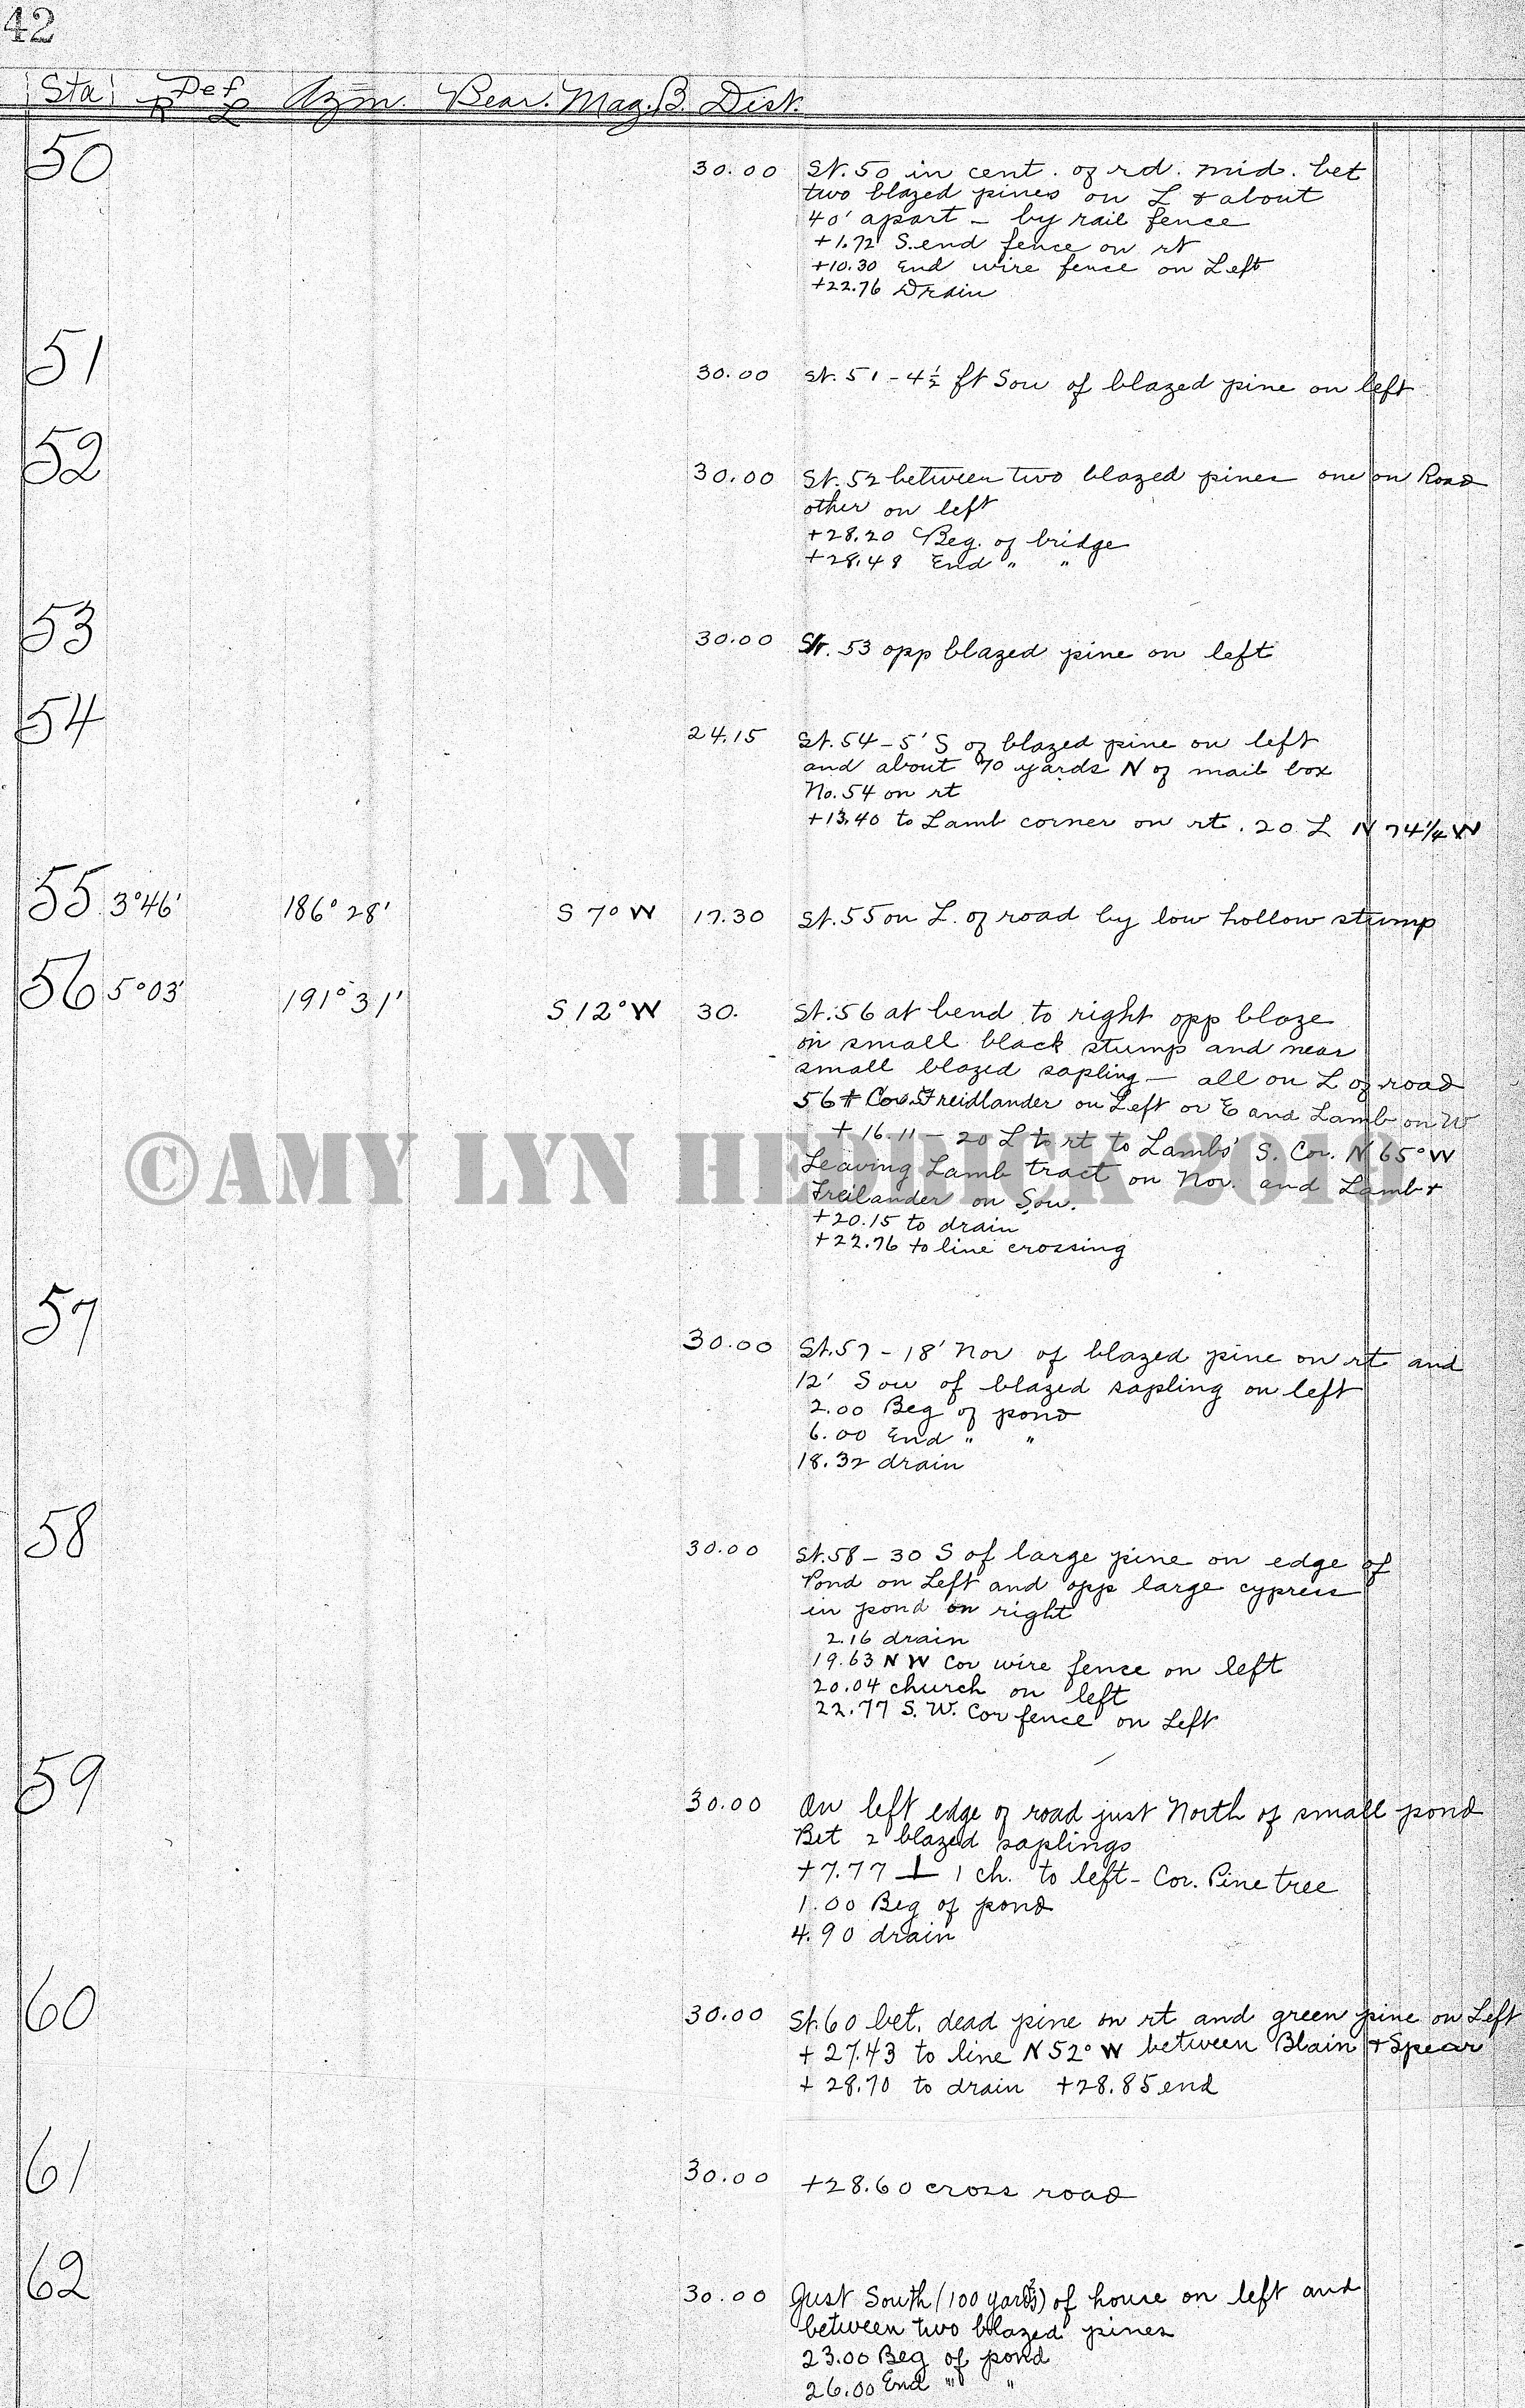 42
Sta Def R L Azm. Bear. Mag. B. Dist.
50 30.00 St. 50 in cent. of rd. mid. bet
two blazed pines on L & about
40' apart – by rail fence
+1.72 S. end fence on rt
+10.30 End wire fence on Left
+22.76 Drain
51 30.00 St. 51 – 4½ ft Sou of blazed pine on left
52 30.00 St. 52 between two blazed pines one on Road
other on left
+28.20 Beg. of bridge
+28.48 End " "
53 30.00 St. 53 opp blazed pine on left
54 24.15 St. 54 – 5' S of blazed pine on left
and about 70 yards N of mail box
No. 54 on rt
+13.40 to Lamb corner on rt. 20 L N 74¼ W
55 3°46' 186°28' S 7° W 17.30 St. 55 on L. of road by low hollow stump
56 5°03' 191°31' S 12° W 30. St. 56 at bend to right opp blaze
on small black stump and near
small blazed sapling – all on L of road
56 + Cor. Freidlander on Left or E and Lamb on W
+ 16.11 – 20 L to rt to Lambs' S. Cor. N 65° W
Leaving Lamb tract on Nor. and Lamb +
Freilander on Sou.
+20.15 to drain
+22.76 to line crossing
©AMY LYN HEDRICK 2019
57 30.00 St. 57 – 18' Nor of blazed pine on rt and
12' Sou of blazed sapling on left
2.00 Beg of pond
6.00 End " "
18.32 drain
58 30.00 St. 58 – 30 S of large pine on edge of
Pond on Left and opp large cypress
in pond on right
2.16 drain
19.63 N W Cor wire fence on left
20.04 church on left
22.77 S. W. Cor fence on Left
59 30.00 On left edge of road just North of small pond
Bet 2 blazed saplings
+7.77 ⊥ 1 ch. to left – Cor. Pine tree
1.00 Beg of pond
4.90 drain
60 30.00 St. 60 bet. dead pine on rt and green pine on Left
+ 27.43 to line N 52° W between Blain + Spear
+ 28.70 to drain +28.85 end
61 30.00 +28.60 cross road
62 30.00 Just South (100 yards) of house on left and
between two blazed pines
23.00 Beg of pond
26.00 End " "